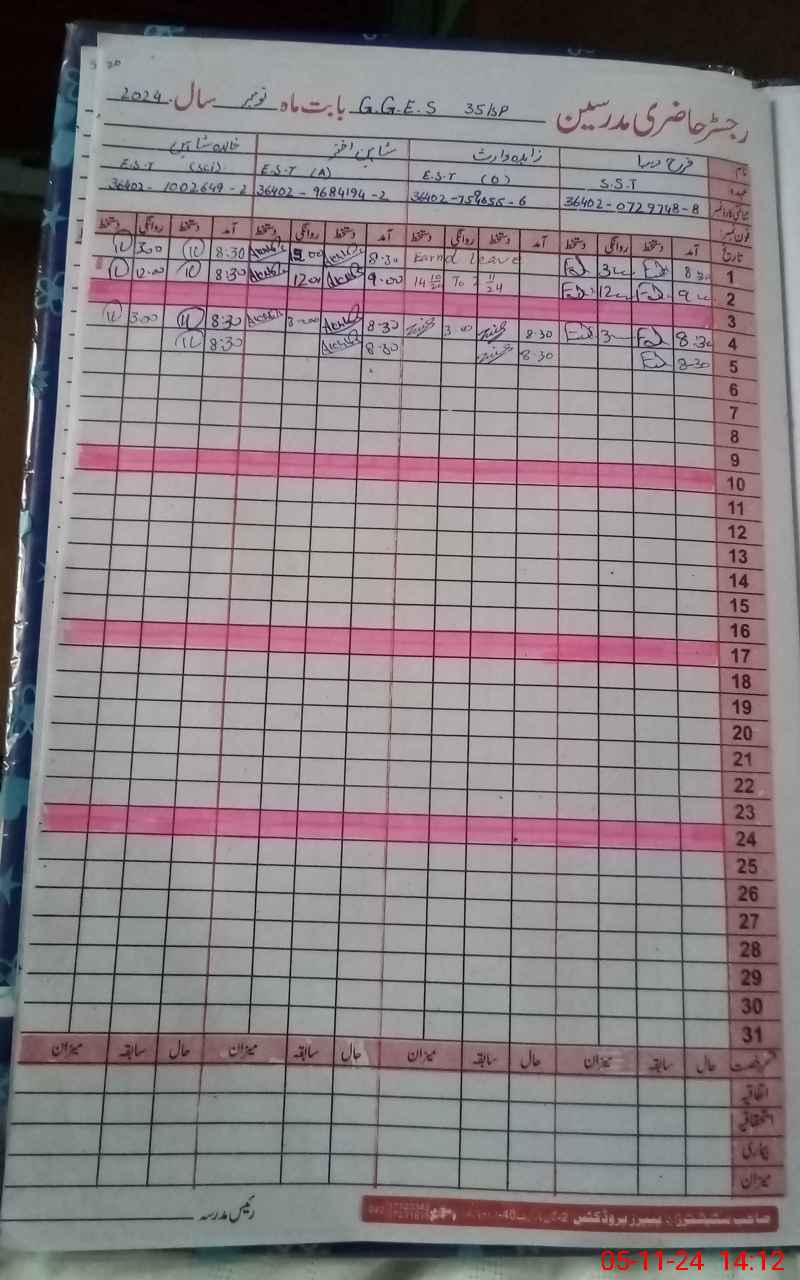 رجسٹر حاضری مدرسین G.G.E.S 35/SP بابت ماہ نومبر سال 2024
نام فرح دیبا زاہدہ وارث شاہین اختر خالدہ شاہین
عہدہ S.S.T E.S.T (O) E.S.T (A) E.S.T (Sci)
شناختی کارڈ نمبر 36402-0729748-8 36402-9684194-2 36402-1002649-2
فون نمبر
تاریخ آمد دستخط روانگی دستخط آمد دستخط روانگی دستخط آمد دستخط روانگی دستخط آمد دستخط روانگی دستخط
1 8:30 3 Earnd Leave 8.30 8:30 3.00
2 9 12 14 10/24 To 11/24 9.00 1200 8:30 12.00
3
4 8:30 3 8.30 3.00 8:30 8:30 3.00
5 8:30 8.30 8.30 8:30
6
7
8
9
10
11
12
13
14
15
16
17
18
19
20
21
22
23
24
25
26
27
28
29
30
31
قسم رخصت حال سابقہ میزان حال سابقہ میزان حال سابقہ میزان حال سابقہ میزان
اتفاقیہ
استحقاقیہ
بیماری
میزان
رئیس مدرسہ
05-11-24 14:12